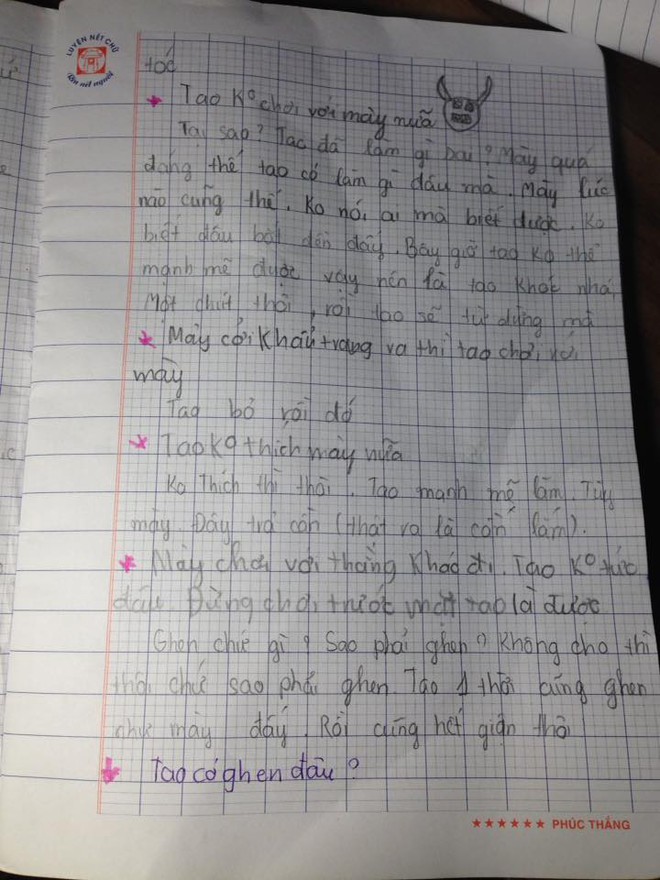 LUYỆN NÉT CHỮ
RÈN NẾT NGƯỜI
tóc
* Tao K° chơi với mày nữa
Tại sao? Tao đã làm gì sai? Mày quá
đáng thế tao có làm gì đâu mà. Mày lúc
nào cũng thế. Ko nói ai mà biết được. Ko
biết đâu bắt đền đấy. Bây giờ tao ko thể
mạnh mẽ được vậy nên là tao khóc nhá,
Một chút thôi, rồi tao sẽ tự đứng mà
* Mày cởi khẩu trang ra thì tao chơi với
mày
Tao bỏ rồi đó
* Tao K° thích mày nữa
Ko Thích thì thôi. Tao mạnh mẽ lắm. Tùy
mày. Đây trả cần (thật ra là cần lắm).
* Mày chơi với thằng khác đi. Tao K° tức
đâu. Đừng chơi trước mặt tao là được
Ghen chứ gì? Sao phải ghen? Không cho thì
thôi chứ sao phải ghen. Tao 1 thời cũng ghen
chứ mày đấy. Rồi cũng hết giận thôi
* Tao có ghen đâu?
★★★★★★ PHÚC THẮNG